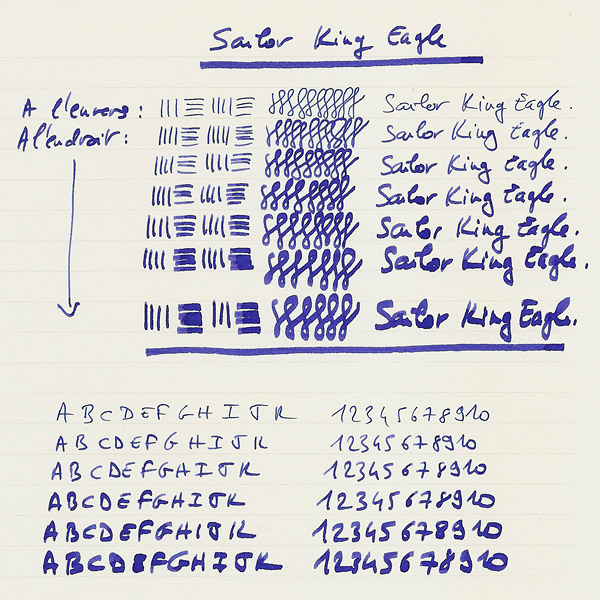 Sailor King Eagle
A l'envers : Sailor King Eagle.
A l'endroit : Sailor King Eagle.
Sailor King Eagle.
Sailor King Eagle.
Sailor King Eagle.
Sailor King Eagle.
Sailor King Eagle.
A B C D E F G H I J K 12345678910
A B C D E F G H I J K 12345678910
A B C D E F G H I J K 12345678910
A B C D E F G H I J K 12345678910
A B C D E F G H I J K 12345678910
A B C D E F G H I J K 12345678910